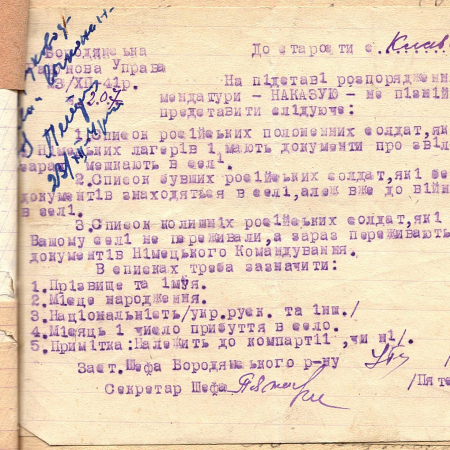 Бородянська
До старости с.
нова Управа
3/XII-41р.
На підставі розпорядженн
мендатури – НАКАЗУЮ – не пізній
207
представити слідуюче:
1.Список російських полоненних солдат, як
Німецьких лагерів і мають документи про звіл
зараз мешкають в селі.
2.Список бувших російських солдат, які бе
документів знаходяться в селі, але ж вже до війн
в селі.
3.Список колишніх російських солдат, які
Вашому селі не переживали, а зараз переживають
документів Німецького Командування.
В списках треба зазначити:
1.Прізвище та імʼя.
2.Місце народження.
3.Національність/укр.руск. та інш./
4.Місяць і число прибуття в село.
5.Примітка: Належить до компартії, чи ні/.
Заст. Шефа Бородянського р-ну
Секретар Шефа
/Пяте